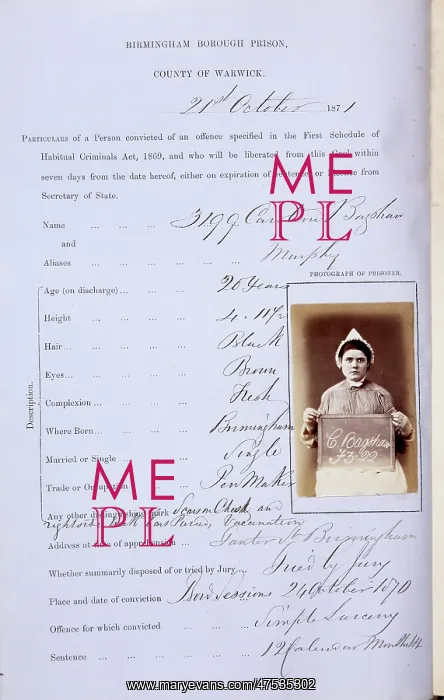 BIRMINGHAM BOROUGH PRISON,
COUNTY OF WARWICK.
21st October 1871
PARTICULARS of a Person convicted of an offence specified in the First Schedule of
Habitual Criminals Act, 1869, and who will be liberated from this Gaol within
seven days from the date hereof, either on expiration of Sentence, or Licence from
Secretary of State.
ME
PL
Name ... ... ... 3199 Caroline Bagshaw
and
Aliases ... ... ... ... ... ... Murphy
PHOTOGRAPH OF PRISONER.
Description.
Age (on discharge) ... ... ... 20 Years
Height ... ... ... ... 4. 11½
Hair ... ... ... ... Black
Eyes ... ... ... ... Brown
Complexion ... ... ... ... Fresh
Where Born ... ... ... Birmingham
Married or Single ... ... ... Single
Trade or Occupation ... ... Pen Maker
C. Bagshaw
ME
PL
Any other distinguishing mark Scar on Cheek and
Vaccination
Address at time of apprehension ... Birmingham
Whether summarily disposed of or tried by Jury ... Tried by Jury
Place and date of conviction Boro Sessions 24 October 1870
Offence for which convicted ... ... ... Simple Larceny
Sentence ... ... ... ... ... ... 12 Calendar Months
www.maryevans.com/47535302